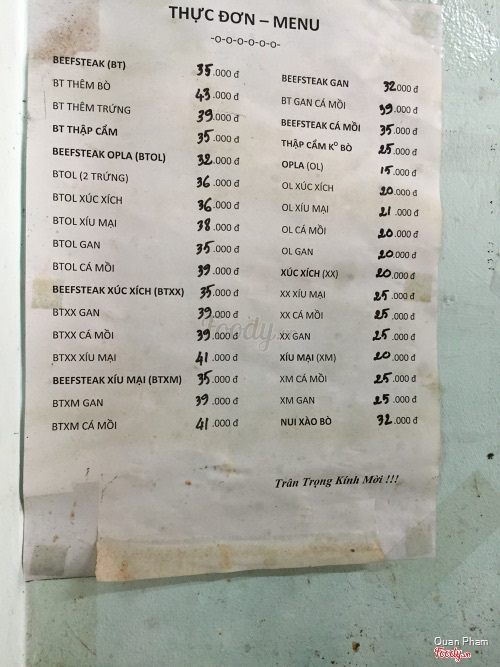 THỰC ĐƠN – MENU
-o-o-o-o-o-o-
BEEFSTEAK (BT) 35.000 đ
BT THÊM BÒ 43.000 đ
BT THÊM TRỨNG 39.000 đ
BT THẬP CẨM 35.000 đ
BEEFSTEAK OPLA (BTOL) 32.000 đ
BTOL (2 TRỨNG) 36.000 đ
BTOL XÚC XÍCH 36.000 đ
BTOL XÍU MẠI 38.000 đ
BTOL GAN 35.000 đ
BTOL CÁ MÒI 39.000 đ
BEEFSTEAK XÚC XÍCH (BTXX) 35.000 đ
BTXX GAN 39.000 đ
BTXX CÁ MÒI 39.000 đ
BTXX XÍU MẠI 41.000 đ
BEEFSTEAK XÍU MẠI (BTXM) 35.000 đ
BTXM GAN 39.000 đ
BTXM CÁ MÒI 41.000 đ
BEEFSTEAK GAN 32.000 đ
BT GAN CÁ MÒI 39.000 đ
BEEFSTEAK CÁ MÒI 35.000 đ
THẬP CẨM Kº BÒ 25.000 đ
OPLA (OL) 15.000 đ
OL XÚC XÍCH 20.000 đ
OL XÍU MẠI 21.000 đ
OL CÁ MÒI 20.000 đ
OL GAN 20.000 đ
XÚC XÍCH (XX) 20.000 đ
XX XÍU MẠI 25.000 đ
XX CÁ MÒI 25.000 đ
XX GAN 25.000 đ
XÍU MẠI (XM) 20.000 đ
XM CÁ MÒI 25.000 đ
XM GAN 25.000 đ
NUI XÀO BÒ 32.000 đ
Trân Trọng Kính Mời !!!
Foody.vn
Quan Pham
Foody.vn